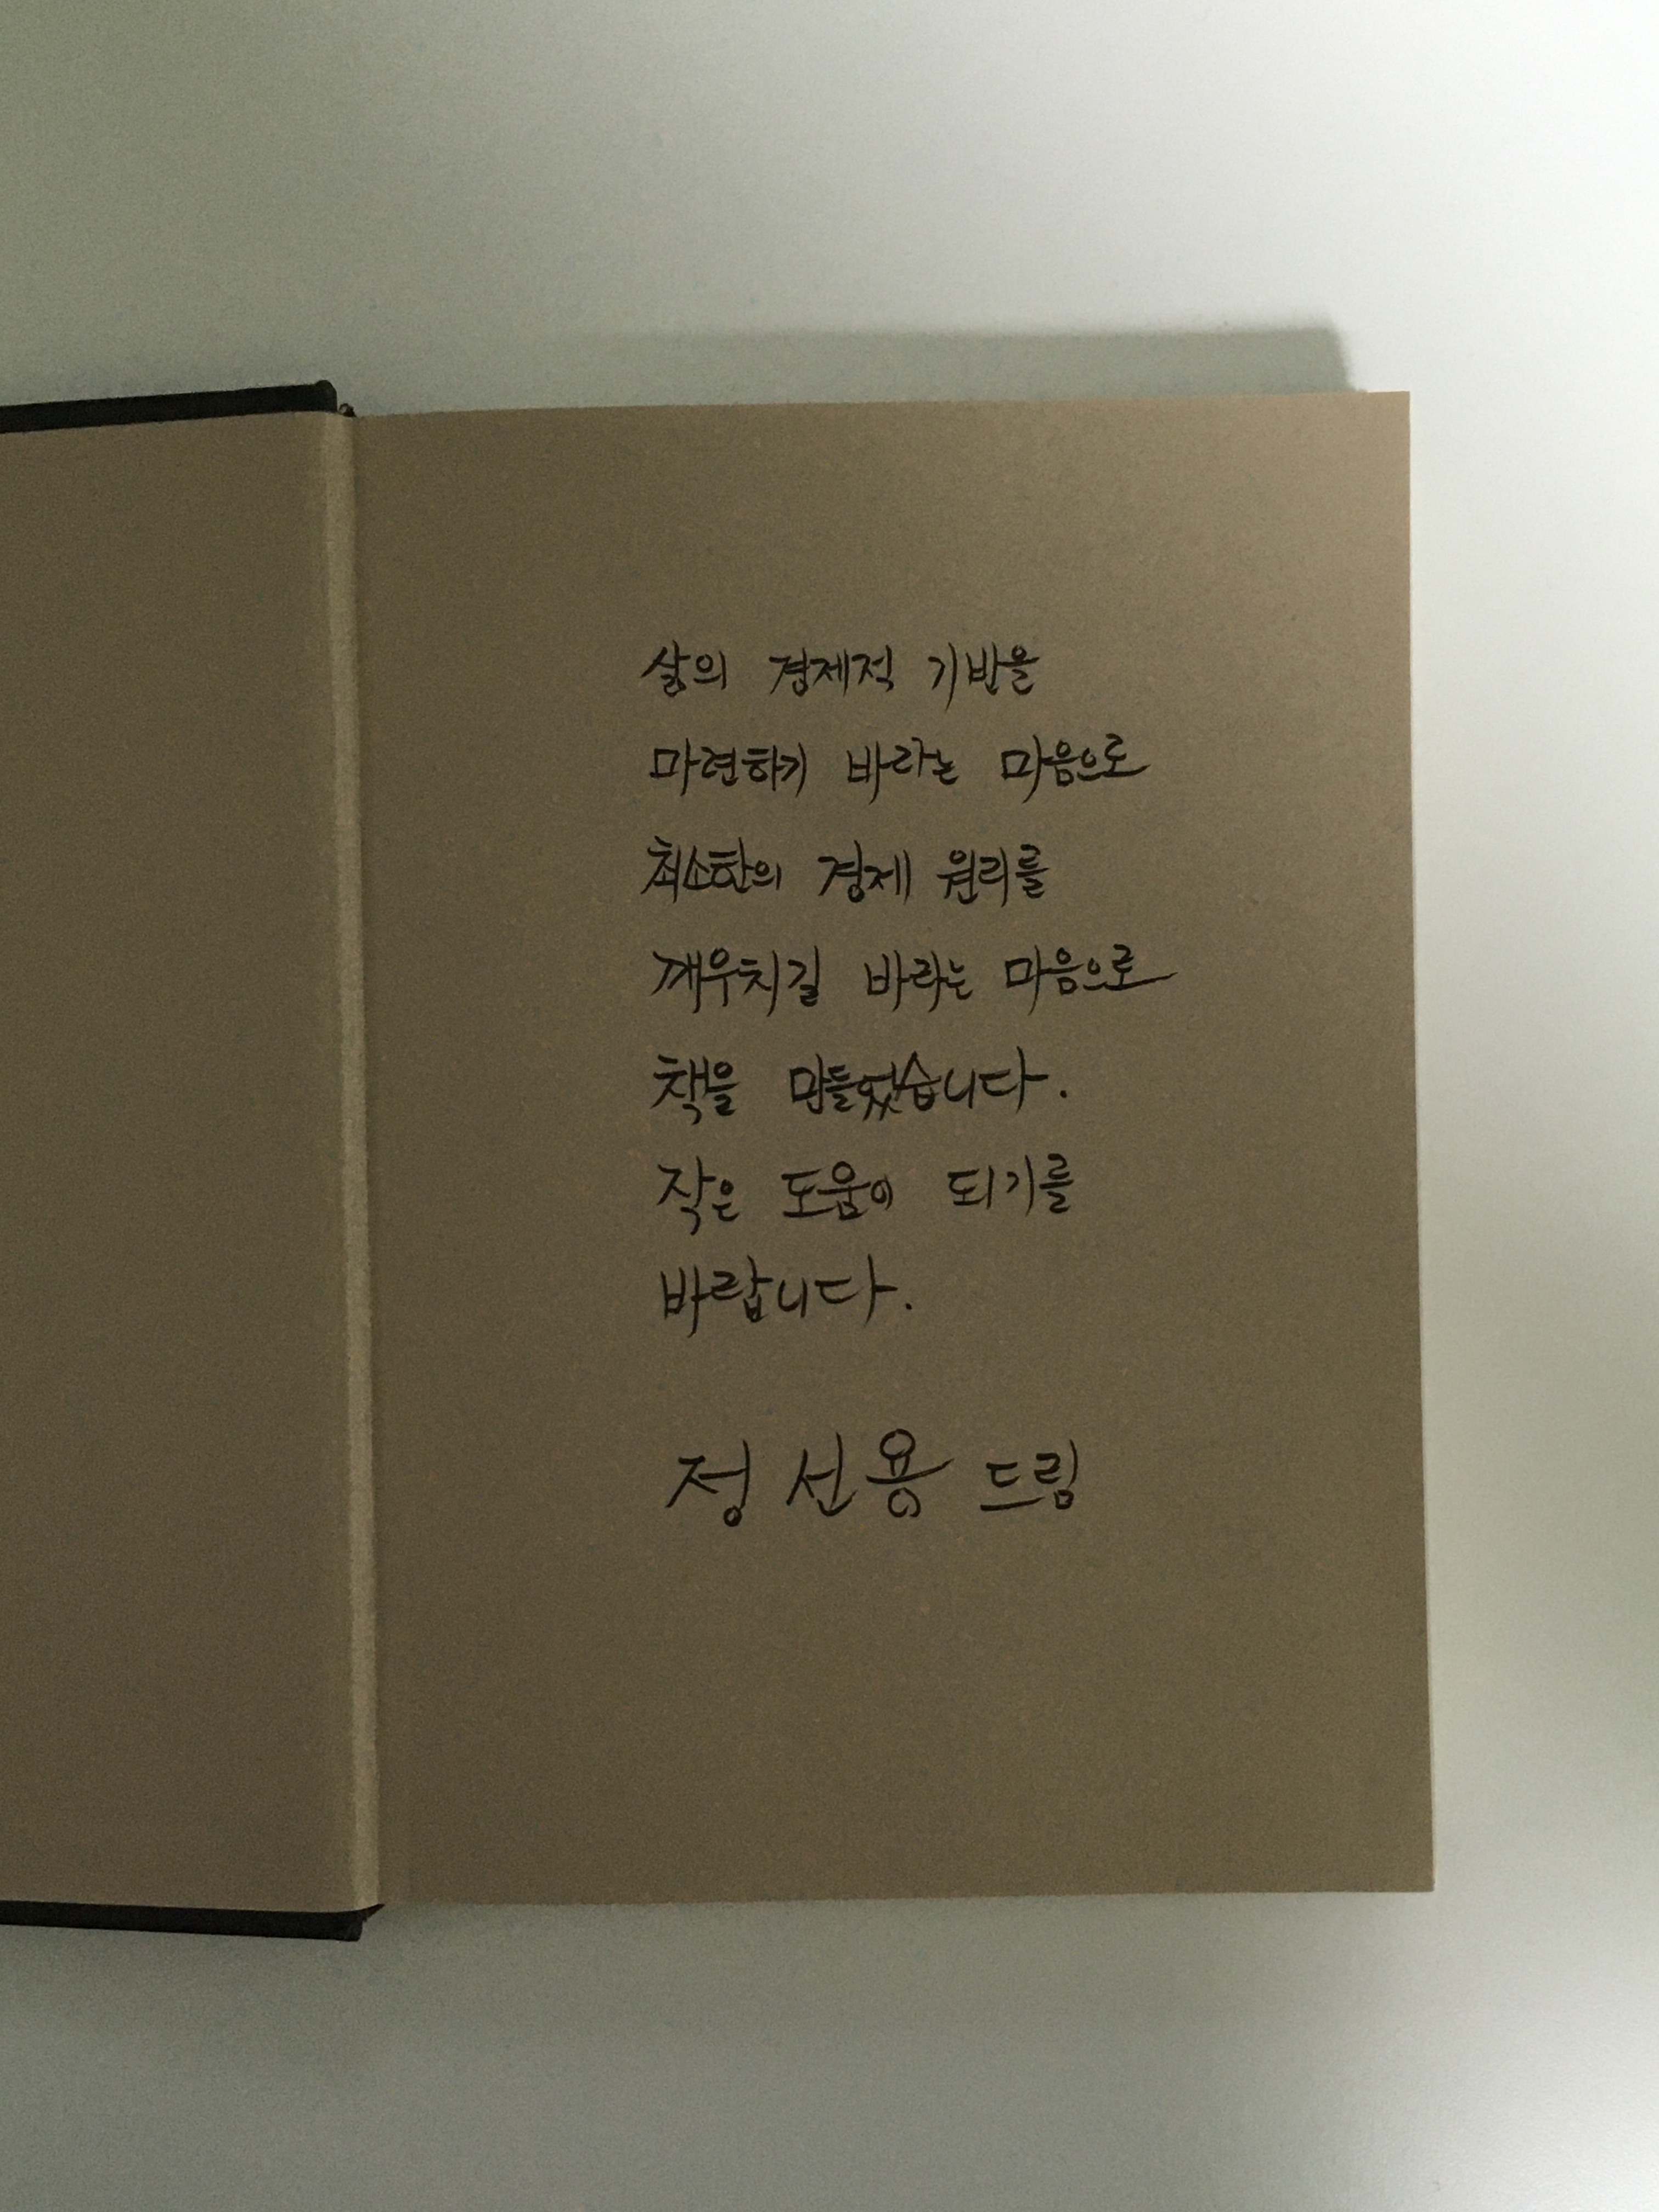 삶의 경제적 기반을
마련하기 바라는 마음으로
최소한의 경제 원리를
깨우치길 바라는 마음으로
책을 만들었습니다.
작은 도움이 되기를
바랍니다.
정선용 드림